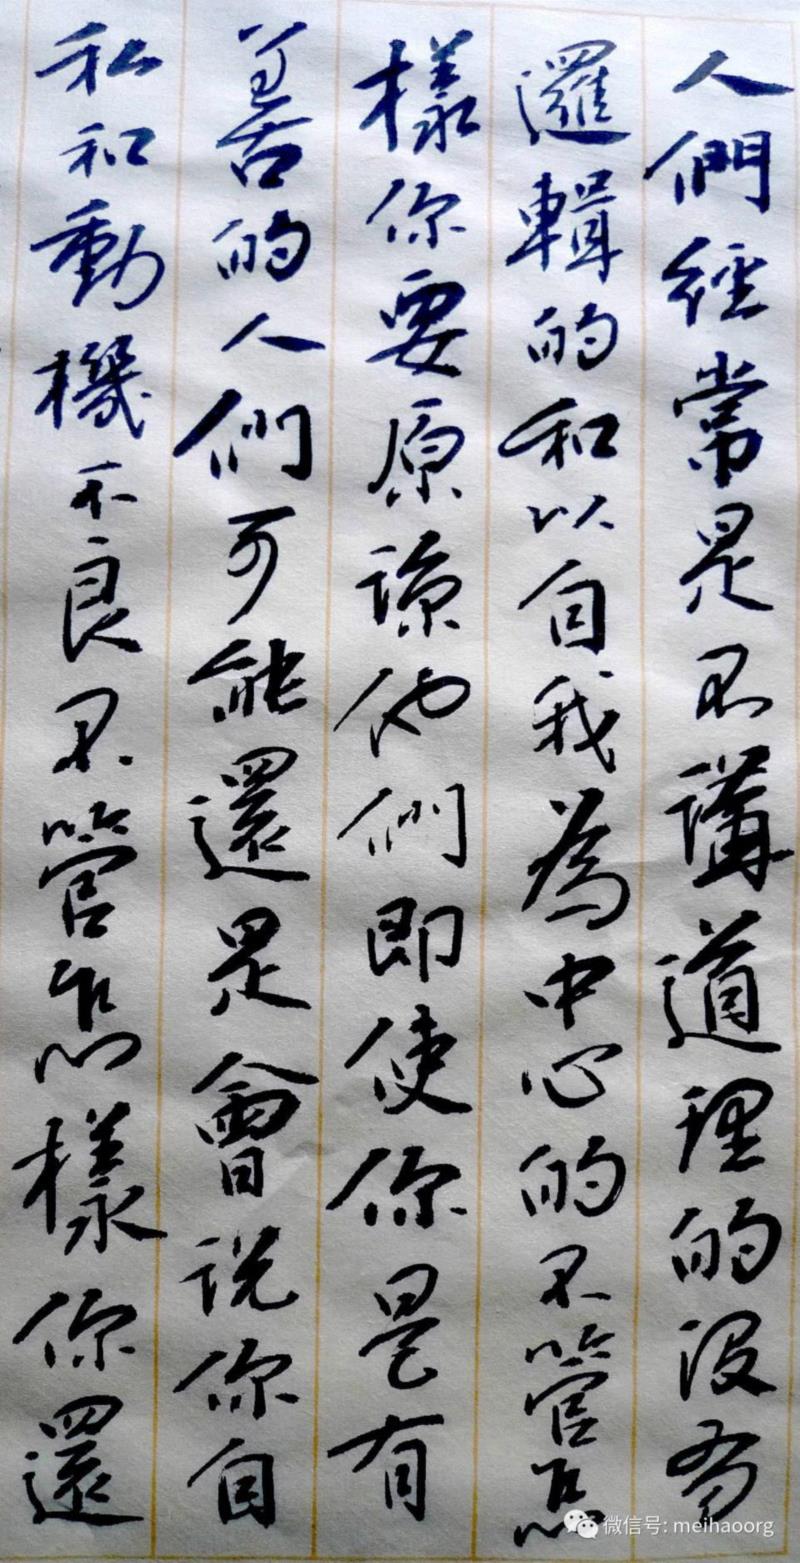 人們經常是不講道理的没有
邏輯的和以自我為中心的不管怎
樣你要原諒他們即使你是有
善的人們可能還是會説你自
私和動機不良不管怎樣你還
微信号: meihaoorg